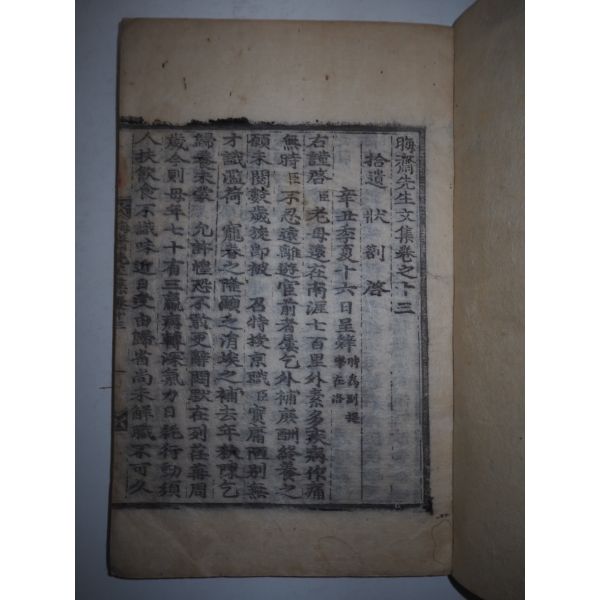 晦齋先生文集卷之十三
拾遺 狀 劄 啓
辛丑季夏十六日呈辭 時爲副提學在洛
右謹啓臣老母遠在南涯七百里外素多疾病作痛
無時臣不忍遠離遊宦前者屢乞外補庶酬終養之
願未閱數歲旋卽被 召特授京職臣實庸陋別無
才識濫荷 寵眷之隆顧乏涓埃之補去年秋陳乞
歸養未蒙 允許惶恐不敢更辭悶默在列荏苒周
歲今則母年七十有三羸病轉深氣力日耗行動須
人扶飮食不識味近日受由歸省尙未解職不可久